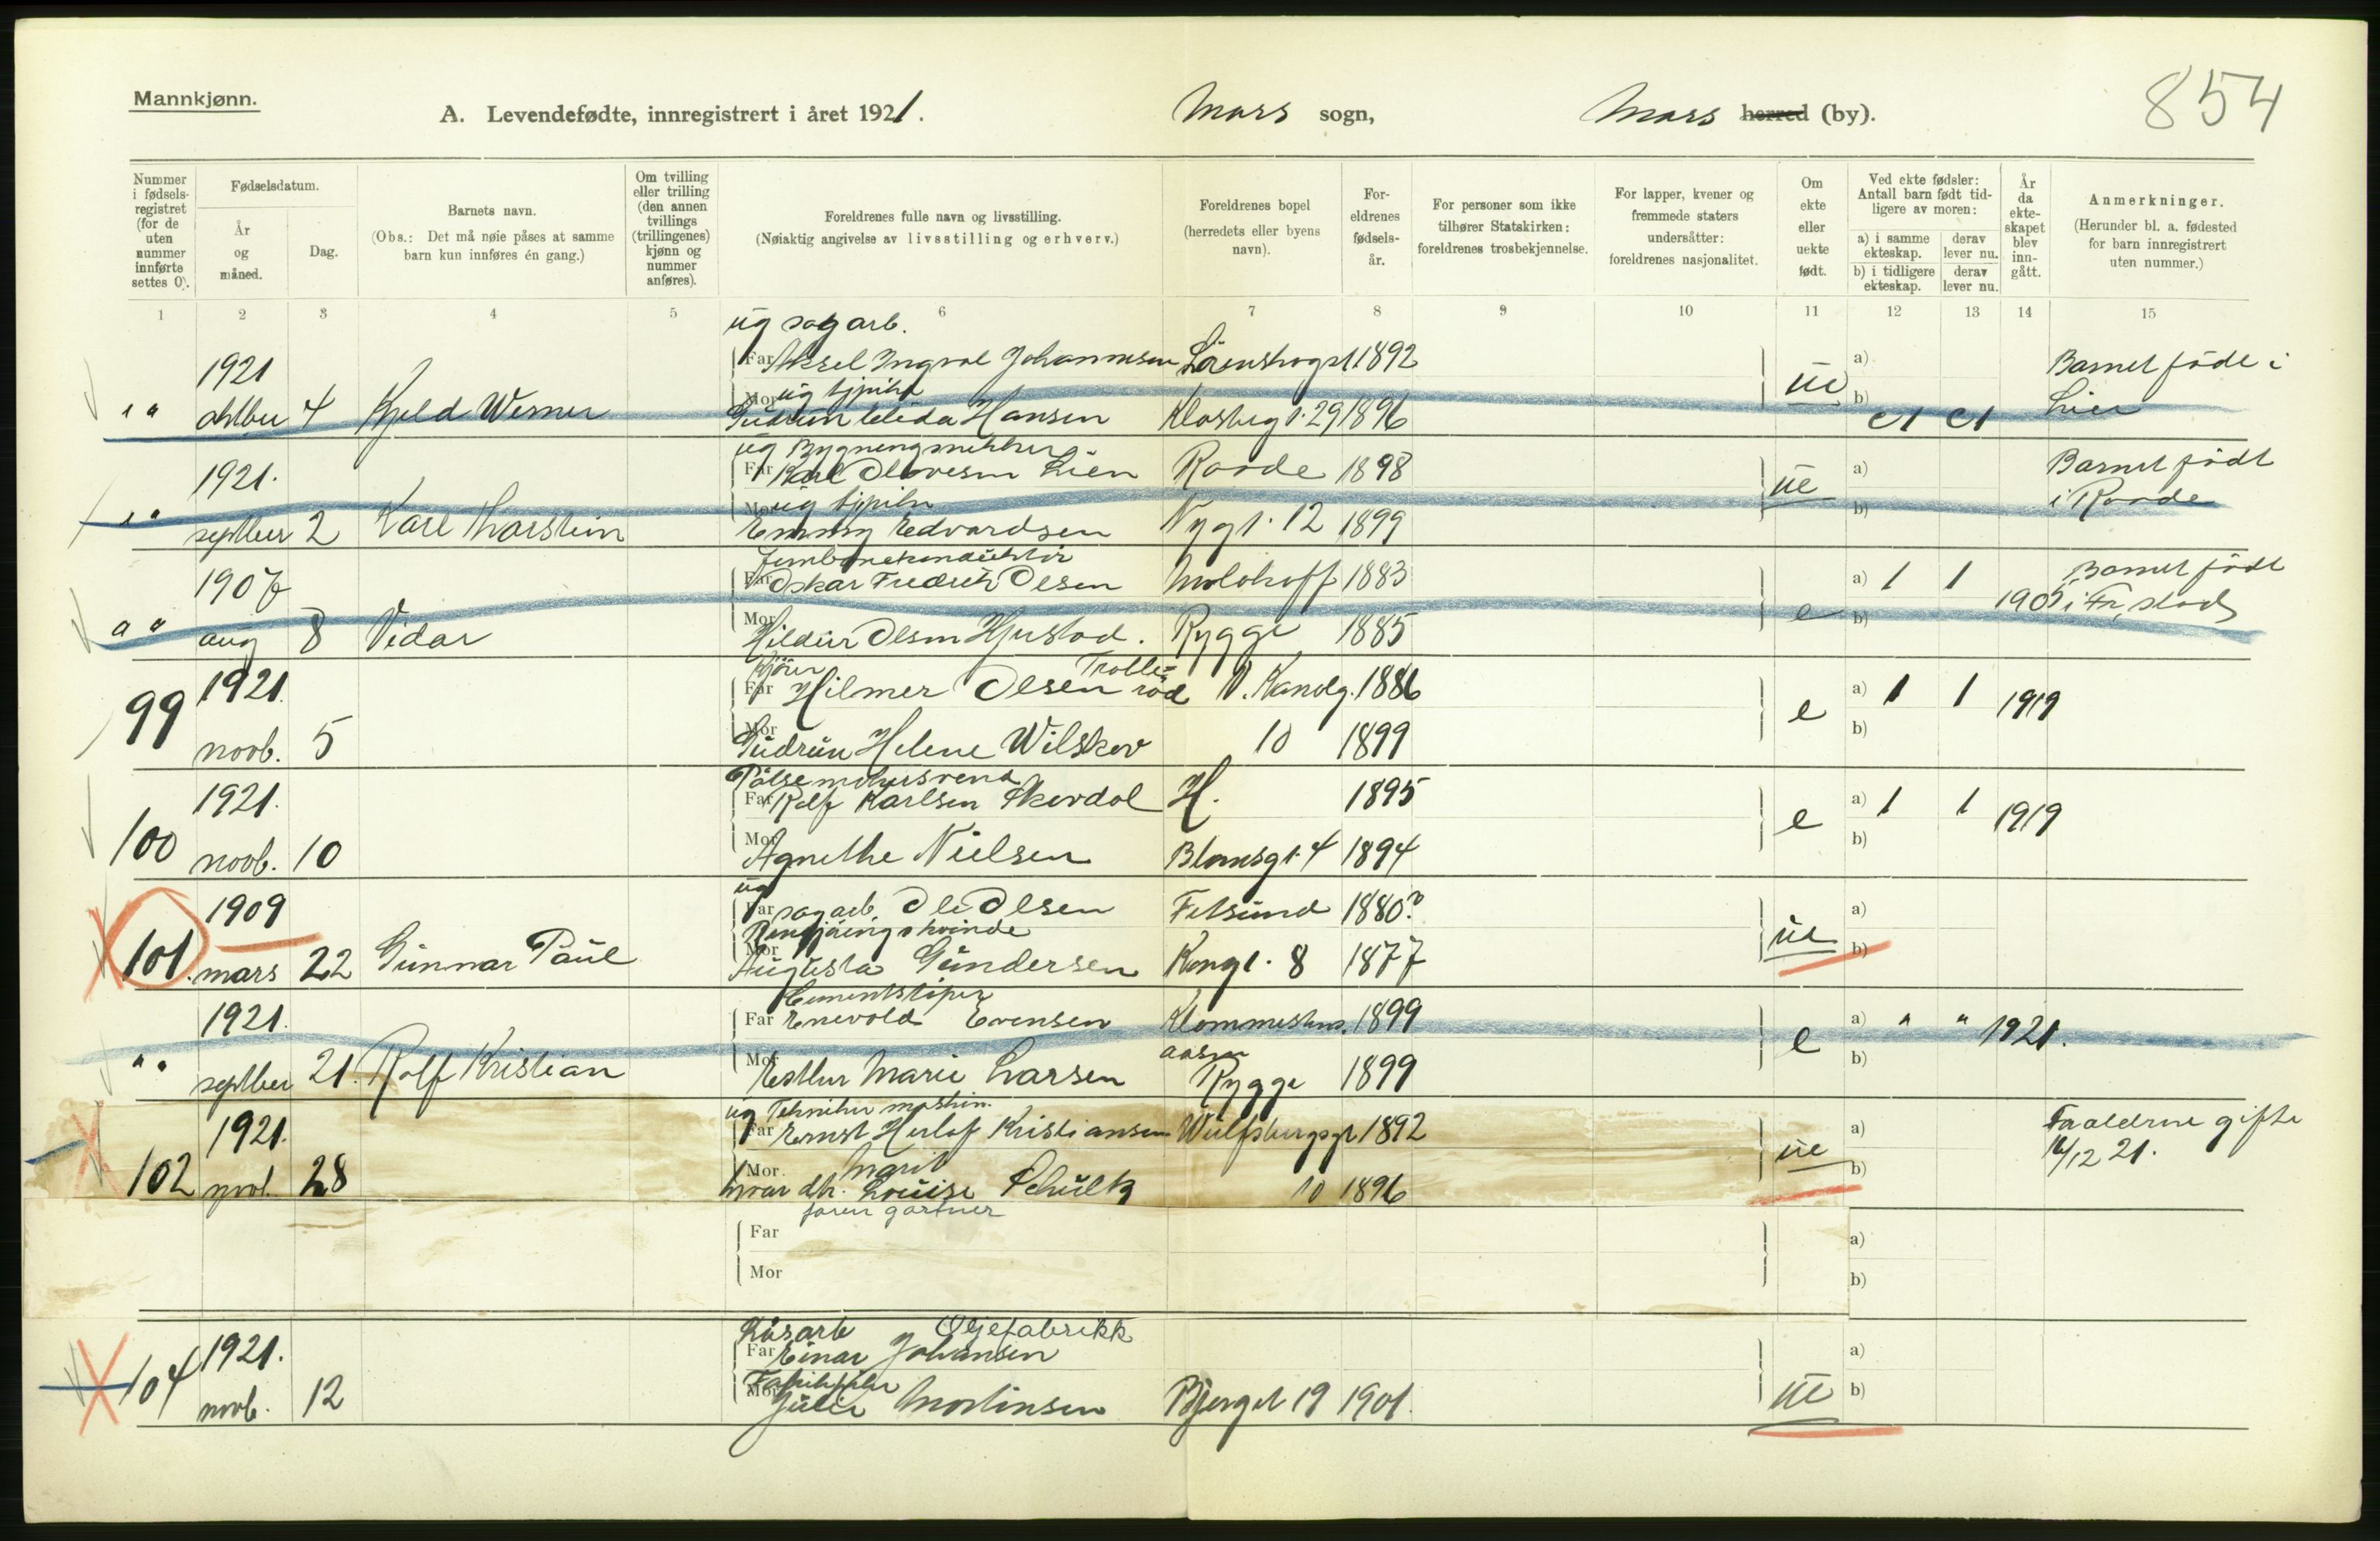 Mannkjønn.
A. Levendefødte, innregistrert i året 1921.
Moss sogn,
Moss herred (by).
854
Nummer i fødselsregistret (for de uten nummer innførte settes 0).
Fødselsdatum.
År og måned.
Dag.
Barnets navn.
(Obs.: Det må nøie påses at samme barn kun innføres én gang.)
Om tvilling eller trilling (den annen tvillings (trillingenes) kjønn og nummer anføres).
Foreldrenes fulle navn og livsstilling.
(Nøiaktig angivelse av livsstilling og erhverv.)
Foreldrenes bopel (herredets eller byens navn).
Foreldrenes fødselsår.
For personer som ikke tilhører Statskirken: foreldrenes trosbekjennelse.
For lapper, kvener og fremmede staters undersåtter: foreldrenes nasjonalitet.
Om ekte eller uekte født.
Ved ekte fødsler: Antall barn født tidligere av moren:
a) i samme ekteskap.
derav lever nu.
b) i tidligere ekteskap.
derav lever nu.
År da ekteskapet blev inngått.
Anmerkninger.
(Herunder bl. a. fødested for barn innregistrert uten nummer.)
1 2 3 4 5 6 7 8 9 10 11 12 13 14 15
ug sagarb.
1921 Far Aksel Johannesen 1892 a) Barnet föde i
Mor ug tjpike ue b)
" " oktber 4 Kjeld Werner Gudrun Hansen 29 1896 Lier
ug Bygningssnekker
1921. Far Karl Olavesen Lien Raade 1898 a) Barnet födt
Mor ug tjpike ue b) i Raade
" " septber 2 Karl Thorstein Emmy Edvardsen Nygt. 12 1899
Jernbanekonduktör
1907 Far Oskar Fredrik Olsen Malakoff 1883 a) 1 1 Barnet födt
e b) 1905 i Fr.stad
" " aug 8 Vidar Mor Hildur Olsen Rygge 1885
Kjörer Trolle=
99 1921. Far Hilmer Olsen röd V. Kanalg. 1886 e a) 1 1 1919
novb. 5 Mor Gudrun Helene Wilskov 10 1899 b)
Pölsemakersvend
1921. Far Rolf Karlsen Skovdal H. 1895 e a) 1 1 1919
100 novb. 10 Mor Agnethe Nielsen Blomsgt. 4 1894 b)
ug
1909 Far sagarb. Ole Olsen Fetsund 1880? a)
Rengjöringskvinde
101. mars 22 Gunnar Paul Mor Augusta Gundersen Kongt. 8 1877 ue b)
Cementstöper
1921. Far Enevold Evensen 1899 e a) " " 1921.
" " septber 21. Rolf Kristian Mor Esther Marie Larsen Rygge 1899 b)
ug Tekniker maskin.
1921. Far Ernst Herlof Kristiansen Wulfsbergsgt 1892 ue a) Foreldrene gifte
Mor Marit b) 16/12 21.
102 novb. 28 hvar dtr. Louise Schultz 10 1896
faren gartner
Far a)
Mor b)
Oljefabrikk
104 1921. Far Einar Johansen a)
Mor
novb. 12 Julie Martinsen Bjerget 19 1901. ue b)